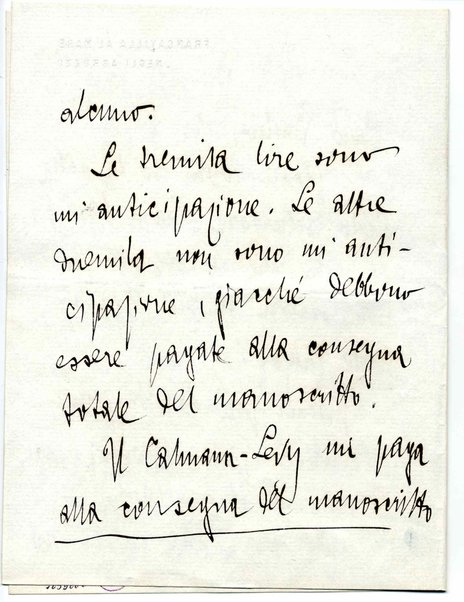 FRANCAVILLA AL MARE
NEGLI ABRUZZI
alcuno.
Le tremila lire sono
in anticipazione. Le altre
tremila non sono in anti-
cipazione, giacché debbono
essere pagate alla consegna
totale del manoscritto.
Il Calmann-Levy mi paga
alla consegna del manoscritto